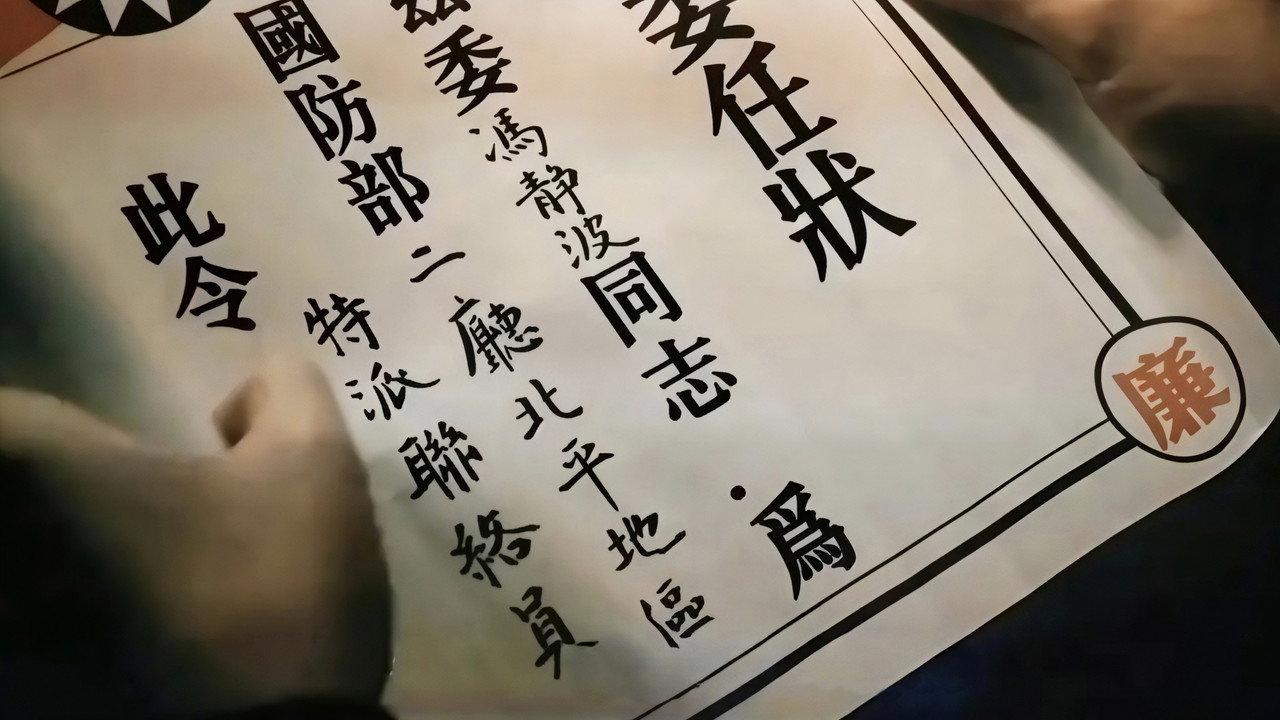 委任狀
茲委馮静波同志·爲
國防部二廳北平地區
特派聯絡員
此令
廉